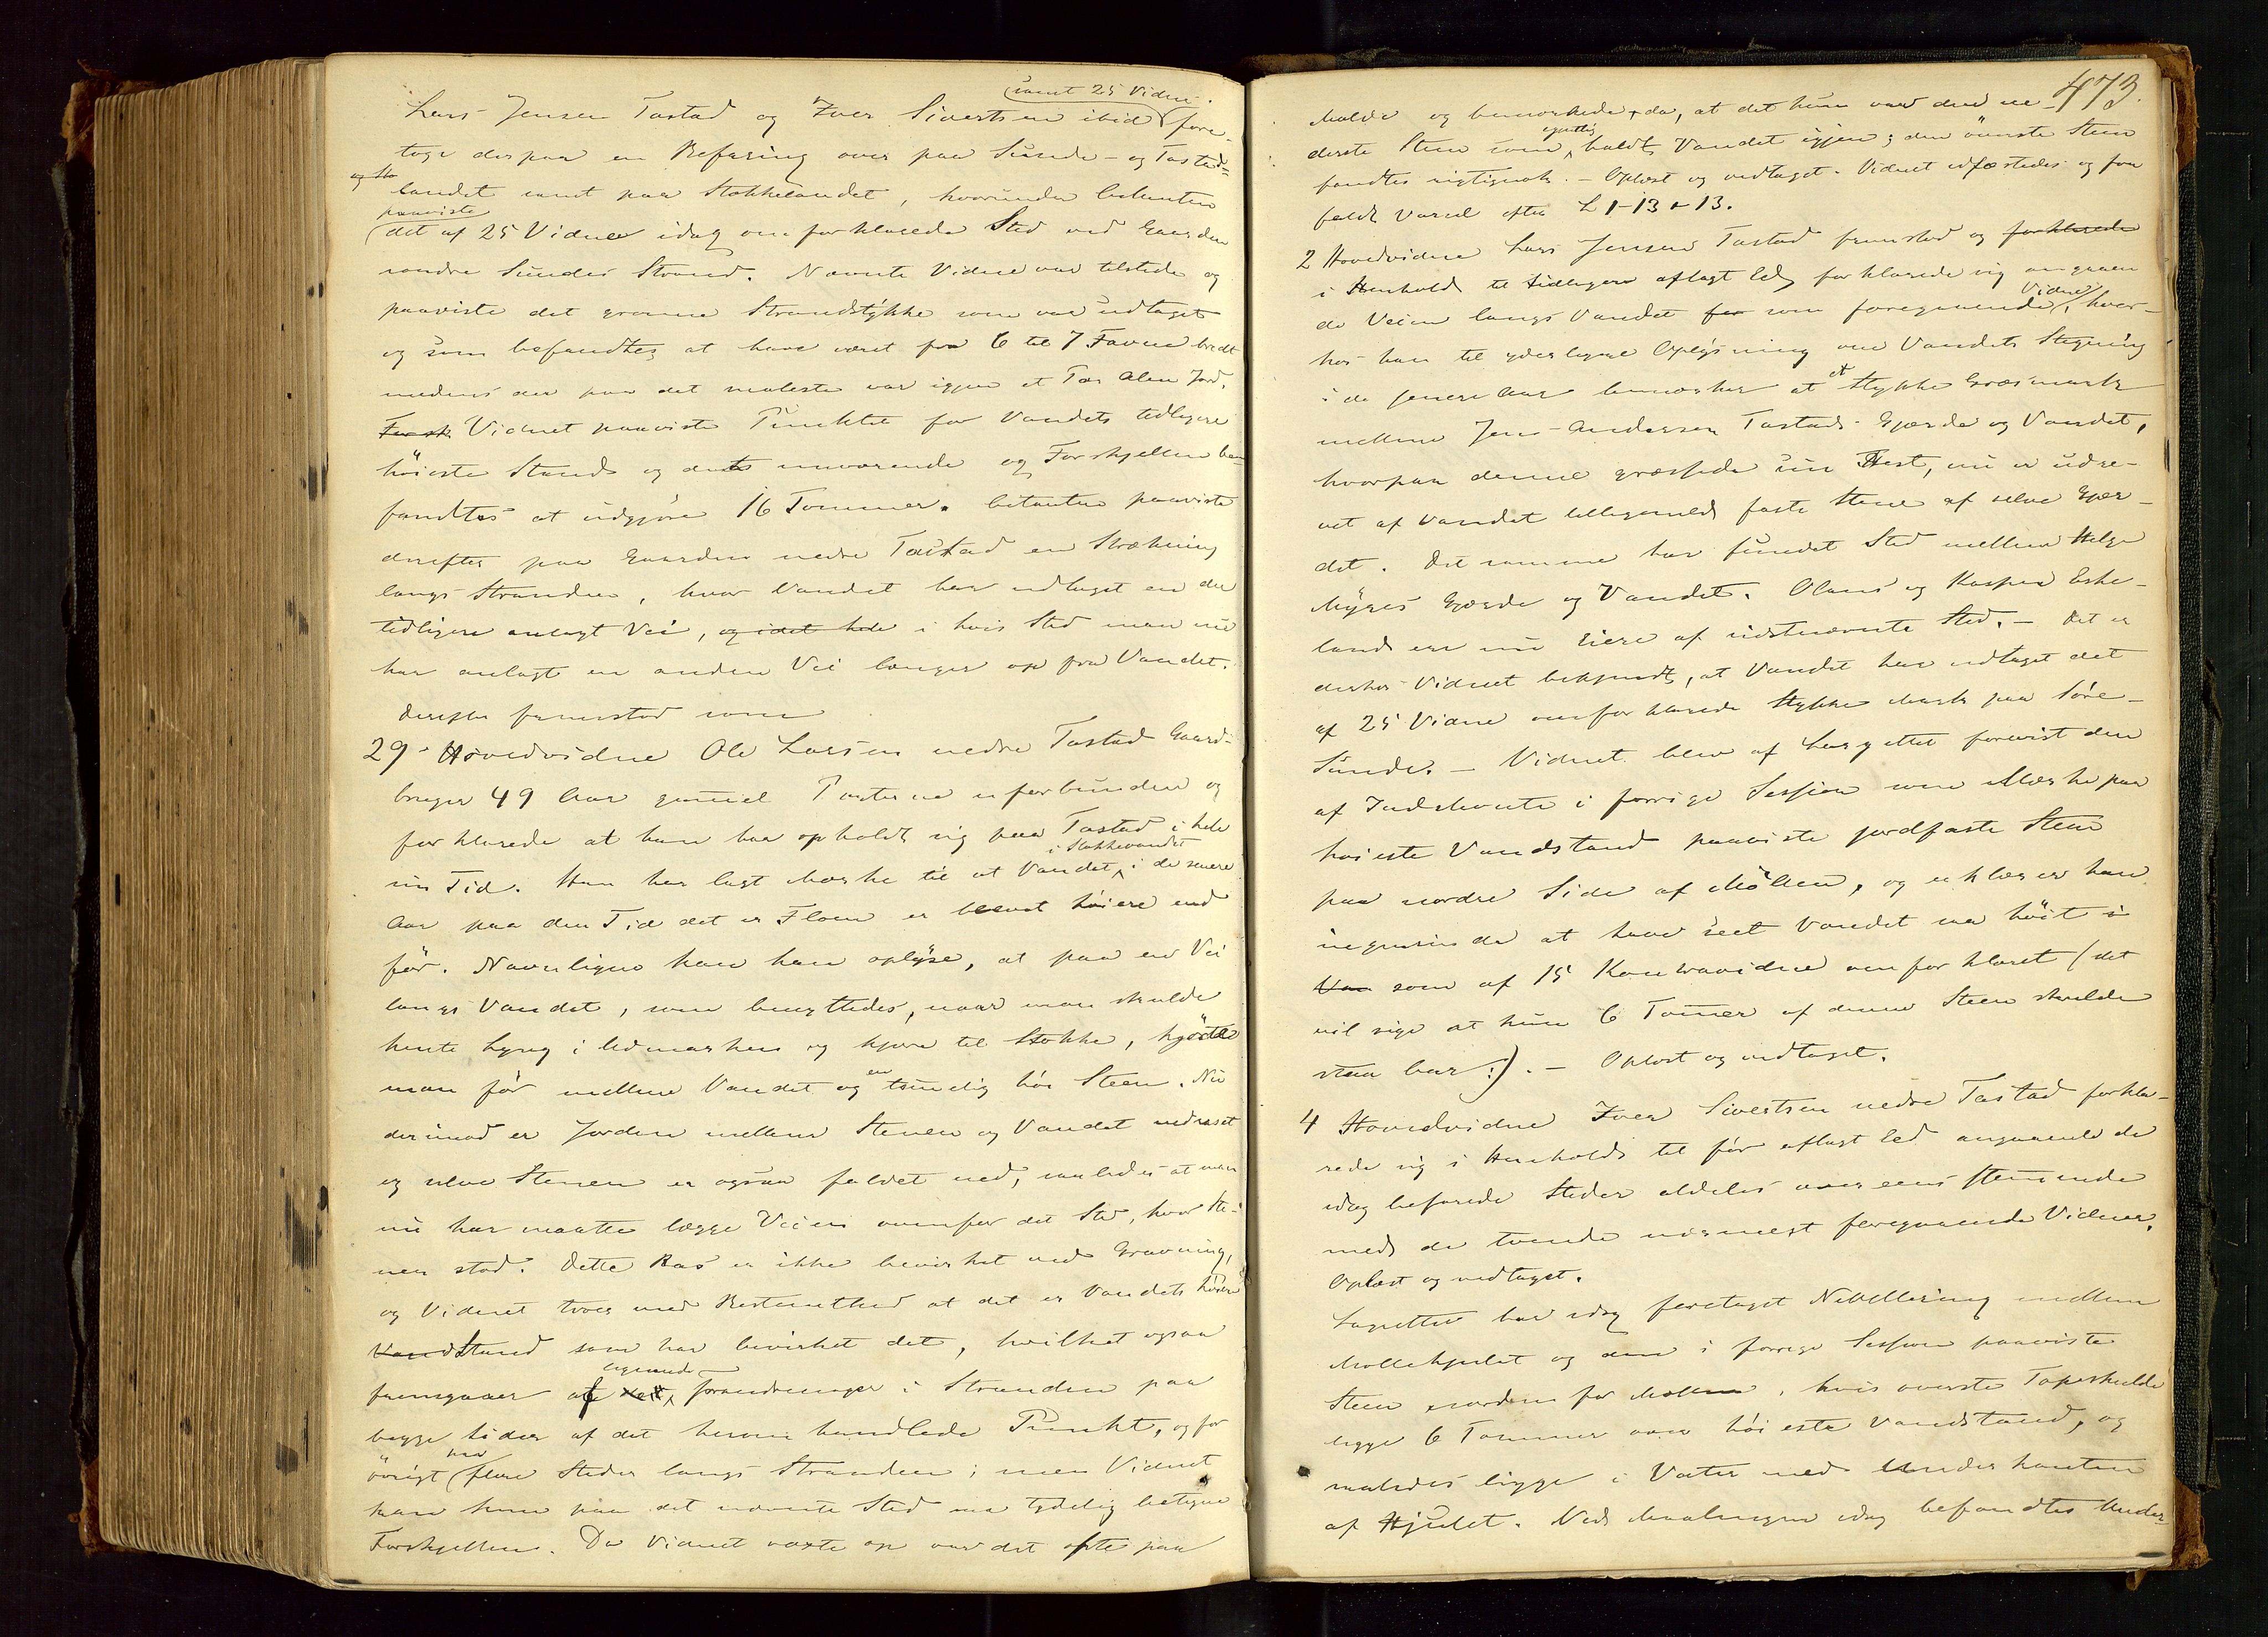 samt 25 Vidne.
Lars Jensen Tastad og Iver Sivertsen ibid fore-
toge derpaa en Befaring over paa Sunde- og Tastad-
og Sto
landet samt paa Stokkelandet, hvorunder Citanten
paaviste
det af 25 Vidne idag omforklarede Sted ved Gaarden
søndre Sundes Strand. Nævnte Vidne var tilstede og
paaviste det grønne Strandstykke som var udtaget
og som befandtes at have været fra 6 til 7 Favne bredt
medens der paa det smaleste var igjen et Par Alen Jord.
Vidnet paaviste Punktet for Vandets tidligere
høieste Stand og dets nuværende og Forskjellen be-
fandtes at udgjøre 16 Tommer. Citanten paaviste
derefter paa Gaarden nedre Tastad en Strækning
langs Stranden, hvor Vandet har udtaget en der
tidligere anlagt Vei, og idet hele i hvis Sted man nu
har anlagt en anden Vei længer op fra Vandet.
Derefter fremstod som
29 Hovedvidne Ole Larsen nedre Tastad Gaard-
bruger 49 Aar gammel Parterne uforbunden og
forklarede at han har opholdt sig paa Tastad i hele
i Stokkevandet
sin Tid. Han har lagt Mærke til at Vandet i de senere
Aar paa den Tid det er Floem er blevet høiere end
før. Navnligen kan han oplyse, at paa en Vei
langs Vandet, som benyttedes, naar man skulde
hente Lyng i Udmarken og kjøre til Stokke, kjørte
man før mellem Vandet og en temmelig høi Steen. Nu
derimod er Jorden mellem Stenen og Vandet nedraset
og selve Stenen er ogsaa faldet ned, saaledes at man
nu har maattet lægge Veien ovenfor det Sted, hvor Ste-
nen stod. Dette Ras er ikke bevirket ved Gravning,
og Vidnet troer med Bestemthed at det er Vandets høiere
Vandstand som har bevirket det, hvilket ogsaa
lignende
fremgaaer af forandringer i Stranden paa
begge Sider af det herom handlede Punkt, og for
øvrigt paa flere Steder langs Stranden; men Vidnet
kan kun paa det nævnte Sted saa tydelig betegne
Forskjellen. Da Vidnet voxte op var det ofte paa
473.
Molde og bemærkede da, at det kun var den ne-
egentlig
derste Steen som holdt Vandet igjen; den øverste Steen
fandtes rigtignok. - Oplæst og vedtaget. Vidnet edfæstedes og fra
faldt Varsel efter L 1-13-13.
2 Hovedvidne Lars Jensen Tastad fremstod og forklarede
i Henhold til tidligere aflagt Ed forklarede sig angaaen
de Veien langs Vandet som foregaaende Vidne, hvor-
hos han til yderligere Oplysning om Vandets Stigning
i de senere Aar bemærker at et Stykke Græsmark
mellem Jens Andersen Tastads Gjærde og Vandet,
hvorpaa denne græssede sin Hest, nu er udre-
vet af Vandet tilligemed faste Stene af selve Gjær-
det. Det samme har fundet Sted mellem Helge
Myres Gjærde og Vandet. Olaus og Kasper Eske-
land ere nu Eiere af sidstnævnte Sted. - Det er
derhos Vidnet bekjendt, at Vandet har udtaget det
af 25 Vidne omforklarede Stykke Mark paa Søre-
Sunde. - Vidnet blev af Lagrettet forevist den
af Indstevnte i forrige Session som Mærke paa
høieste Vandstand paaviste jordfaste Steen
paa nordre Side af Møllen, og erklærer han
ingensinde at have seet Vandet saa høit
som af 15 Kontravidne omforklaret (det
vil sige at kun 6 Tommer af denne Steen skulde
staa bar :). - Oplæst og vedtaget.
4 Hovedvidne Iver Sivertsen nedre Tastad forkla-
rede sig i Henhold til før aflagt Ed angaaende de
idag befarede Steder aldeles overeensstemmende
med de tvende næstmest foregaaende Vidner.
Oplæst og vedtaget.
Lagrettet har idag foretaget Nivellering mellem
Møllehjulet og den i forrige Session paaviste
Steen norden for Møllen, hvis øverste Top skulde
ligge 6 Tommer over høieste Vandstand, og
saaledes ligge i Vater med Underkanten
af Hjulet. Ved Maalingen idag befandtes Under-